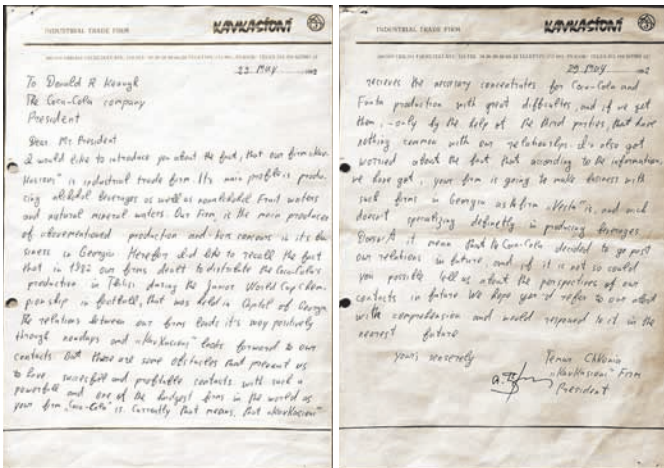 INDUSTRIAL TRADE FIRM
KAVKASIONI
23 May
To Donald R Keough
The Coca-Cola company
President
Dear Mr President
I would like to introduce you about the fact, that our firm „Kav-
kasioni" is industrial trade firm. It's main profile is produ-
cing alkohol beverages as well as nonalkohol Fruit waters
and natural mineral waters. Our Firm, is the main producer
of abovementioned production and has concerns in it's bu-
siness in Georgia Hereby I'd like to recall the fact
that in 1982 our firms dealt to distribute the Coca-Cola's
production in Tbilisi during the Junior World Cup Cham-
pionship in football, that was held in Capital of Georgia
The relations between our firms leads it's way positively
through nowdays and „Kavkasioni" looks forward to our
contacts But there are some obstacles that prevent us
to have succesfull and profitable contacts with such a
powerfull and one of the hudgest firms in the world as
your firm „Coca-Cola" is. Currently that means, that „Kavkasioni"
INDUSTRIAL TRADE FIRM
KAVKASIONI
23 May
recieves the necessary concentrates for Coca-Cola and
Fanta production with great difficulties, and if we get
them, - only by the help of the third parties, that have
nothing common with our relationships. I've also got
worried about the fact that according to the information,
we have got, your firm is going to make business with
such firms in Georgia as firm „Vesta" is, and
doesn't specializing definetly in producing beverages
it mean that Coca-Cola decided to go past
our relations in future, and if it is not so could
you possible tell us about the perspectives of our
contacts in future We hope you'd refer to our
with comprehension and would respond to it in the
nearest future
yours sencerely
Temur Chkonia
„Kavkasioni" Firm
President